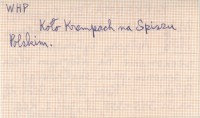 WHP
Koło Krempach na Spiszu
Polskim.